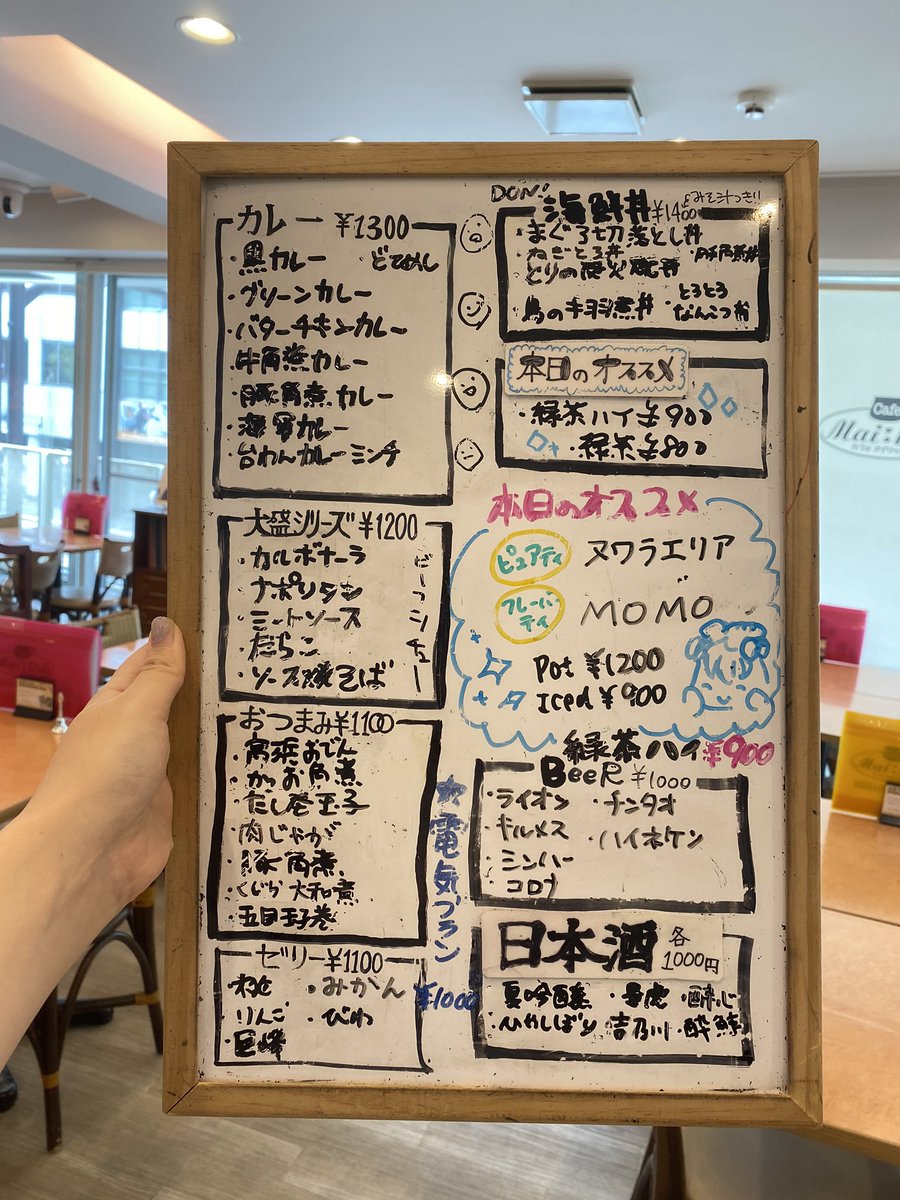 カレー ¥1300
・黒カレー
・グリーンカレー
・バターチキンカレー
・牛角煮カレー
・豚角煮カレー
・カレー
・台わんカレーミンチ
大盛シリーズ ¥1200
・カルボナーラ
・ナポリタン
・ミートソース
・たらこ
・ソース焼そば
ビーフシチュー
おつまみ ¥1100
・高浜おでん
・かつお角煮
・だし巻玉子
・肉じゃが
・豚角煮
・くじら大和煮
・五目玉子巻
ゼリー ¥1100
・みかん
・りんご
・びわ
・巨峰
電気ブラン
¥1000
DON!
海鮮丼 ¥1400
みそ汁つき!!
・まぐろ切落とし丼
・ねぎとろ丼
・豚角煮丼
・とろとろなんこつ丼
本日のオススメ
・緑茶ハイ ¥900
・緑茶 ¥800
本日のオススメ
ピュアティ
ヌワラエリア
フレーバーティ
MOMO
Pot ¥1200
Iced ¥900
緑茶ハイ ¥900
BeeR ¥1000
・ライオン
・チンタオ
・キルメス
・ハイネケン
・シンハー
・コロナ
日本酒 各1000円
・夏吟醸
・酔心
・ひやしぼり
・吉乃川
・酔鯨
Cafe
Mai:lish